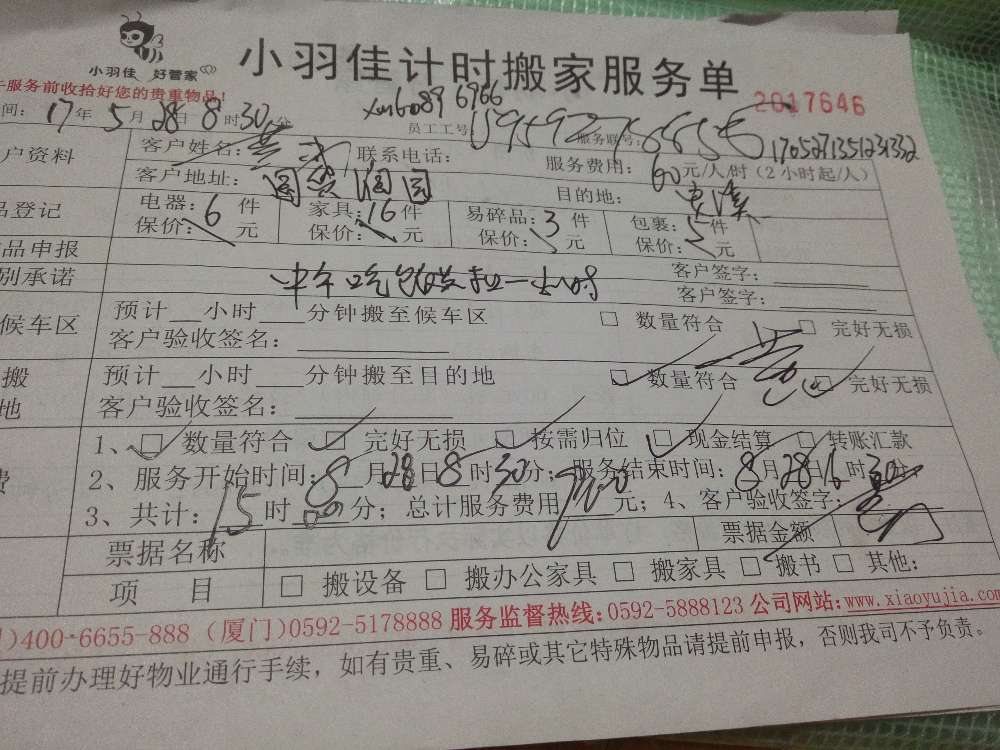 小羽佳 好管家
小羽佳计时搬家服务单
服务前收拾好您的贵重物品!
2017646
间: 17年5月28日8时30分
xm6089 6966
员工工号:
服务联号: 170527135123332
户资料
客户姓名:
联系电话:
服务费用: 60元/人/时(2小时起/人)
客户地址:
目的地:
品登记
电器: 6件
家具: 16件
易碎品: 3件
包裹: 5件
保价: 元
保价: 元
保价: 元
保价: 元
品申报
客户签字:
别承诺
中午吃饭 扣一小时
客户签字:
候车区
预计__小时___分钟搬至候车区
□ 数量符合
□ 完好无损
客户验收签名:
搬
地
预计__小时___分钟搬至目的地
□ 数量符合
□ 完好无损
客户验收签名:
费
1、□ 数量符合 □ 完好无损 □ 按需归位 □ 现金结算 □ 转账汇款
2、服务开始时间: 8月28日8时30分; 服务结束时间: 8月28日16时30分
3、共计: 15时00分; 总计服务费用900元; 4、客户验收签字:
票据名称
票据金额
项 目
□ 搬设备 □ 搬办公家具 □ 搬家具 □ 搬书 □ 其他:
)400-6655-888 (厦门)0592-5178888 服务监督热线:0592-5888123 公司网站:www.xiaoyujia.com
提前办理好物业通行手续，如有贵重、易碎或其它特殊物品请提前申报，否则我司不予负责。